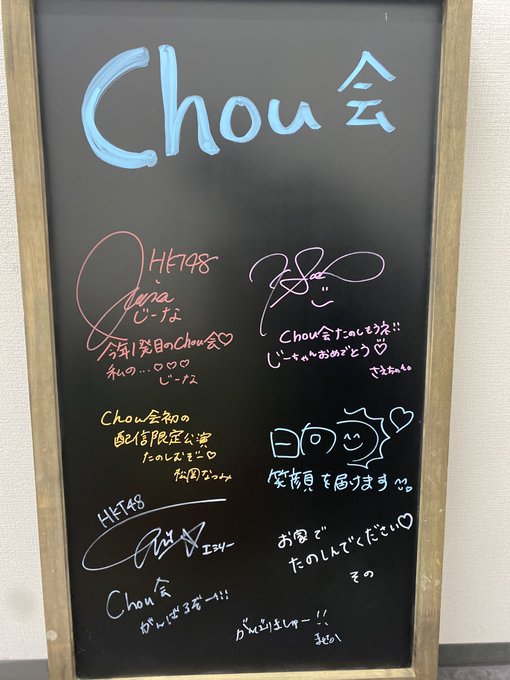 Chou会
HKT48
じーな
今年1発目のChou会♡
私の…♡♡♡
じーな
Chou会たのしもうネ!!
じーちゃんおめでとう♡
Chou会初の
配信限定公演
たのしむぞー♡
松岡なつみ
日向
笑顔を届けます
HKT48
Chou会
がんばるぞー!!!
お家で
たのしんでください♡
その
がんばりましゅー!!